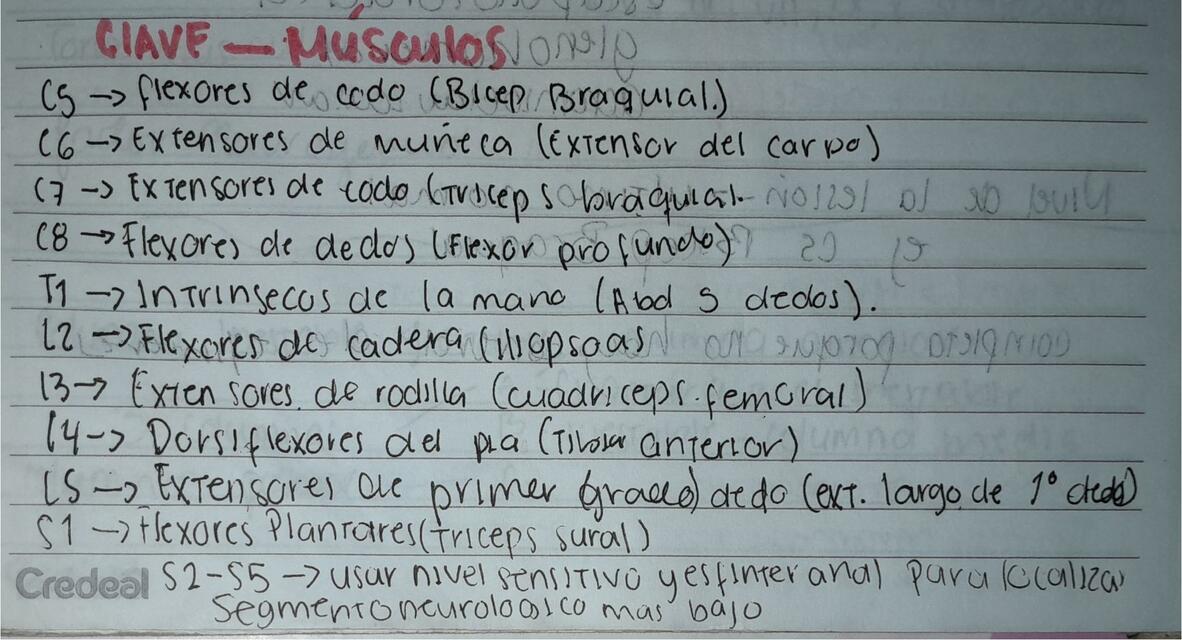 CLAVE — MÚSCULOS
C5 → flexores de codo (Bicep Braquial.)
C6 → Extensores de muñeca (Extensor del carpo)
C7 → Extensores de codo (Triceps braquial.
C8 → Flexores de dedos (Flexor profundo)
T1 → Intrinsecos de la mano (Abd 5 dedos).
L2 → Flexores de cadera (Iliopsoas
L3 → Extensores de rodilla (cuadriceps.femoral)
L4 → Dorsiflexores del (Tibial anterior)
L5 → Extensores de primer dedo (ext. largo de 1° dedo)
S1 → Flexores Plantares (Triceps sural)
Credeal S2-S5 → usar nivel sensitivo y esfinter anal para localizar
Segmento neurologico mas bajo